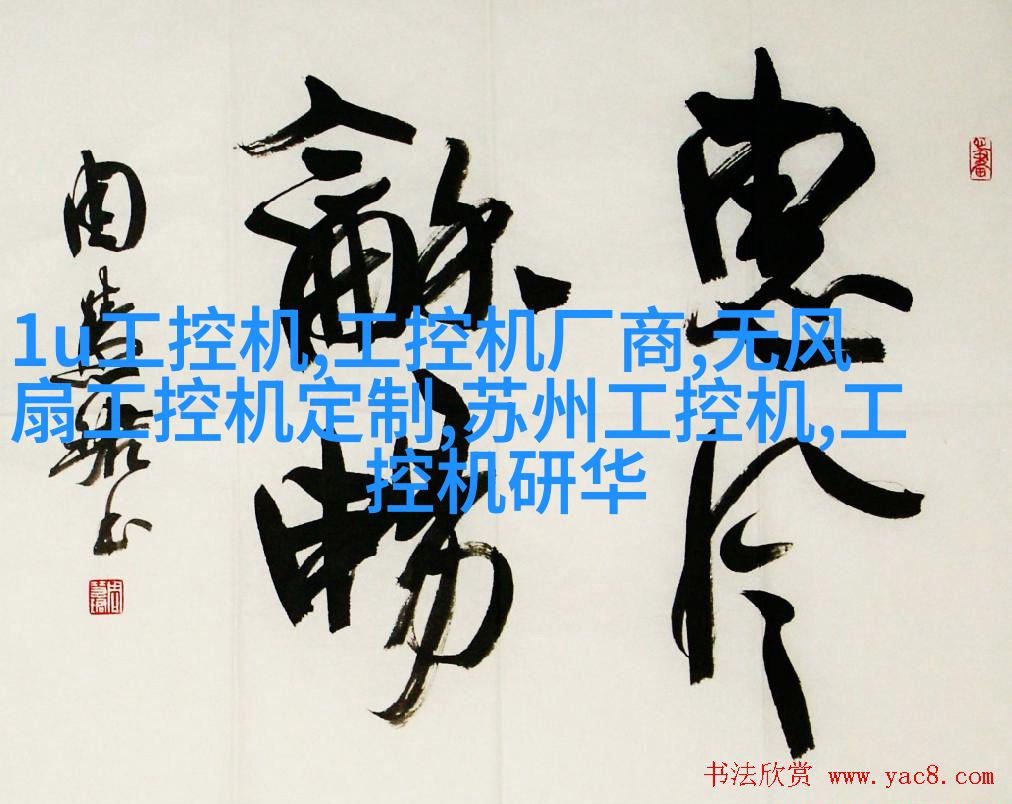 惠风
龢畅
周慧珺书
1u工控机,工控机厂商,无风
扇工控机定制,苏州工控机,工
控机研华
书法欣赏 www.yac8.com